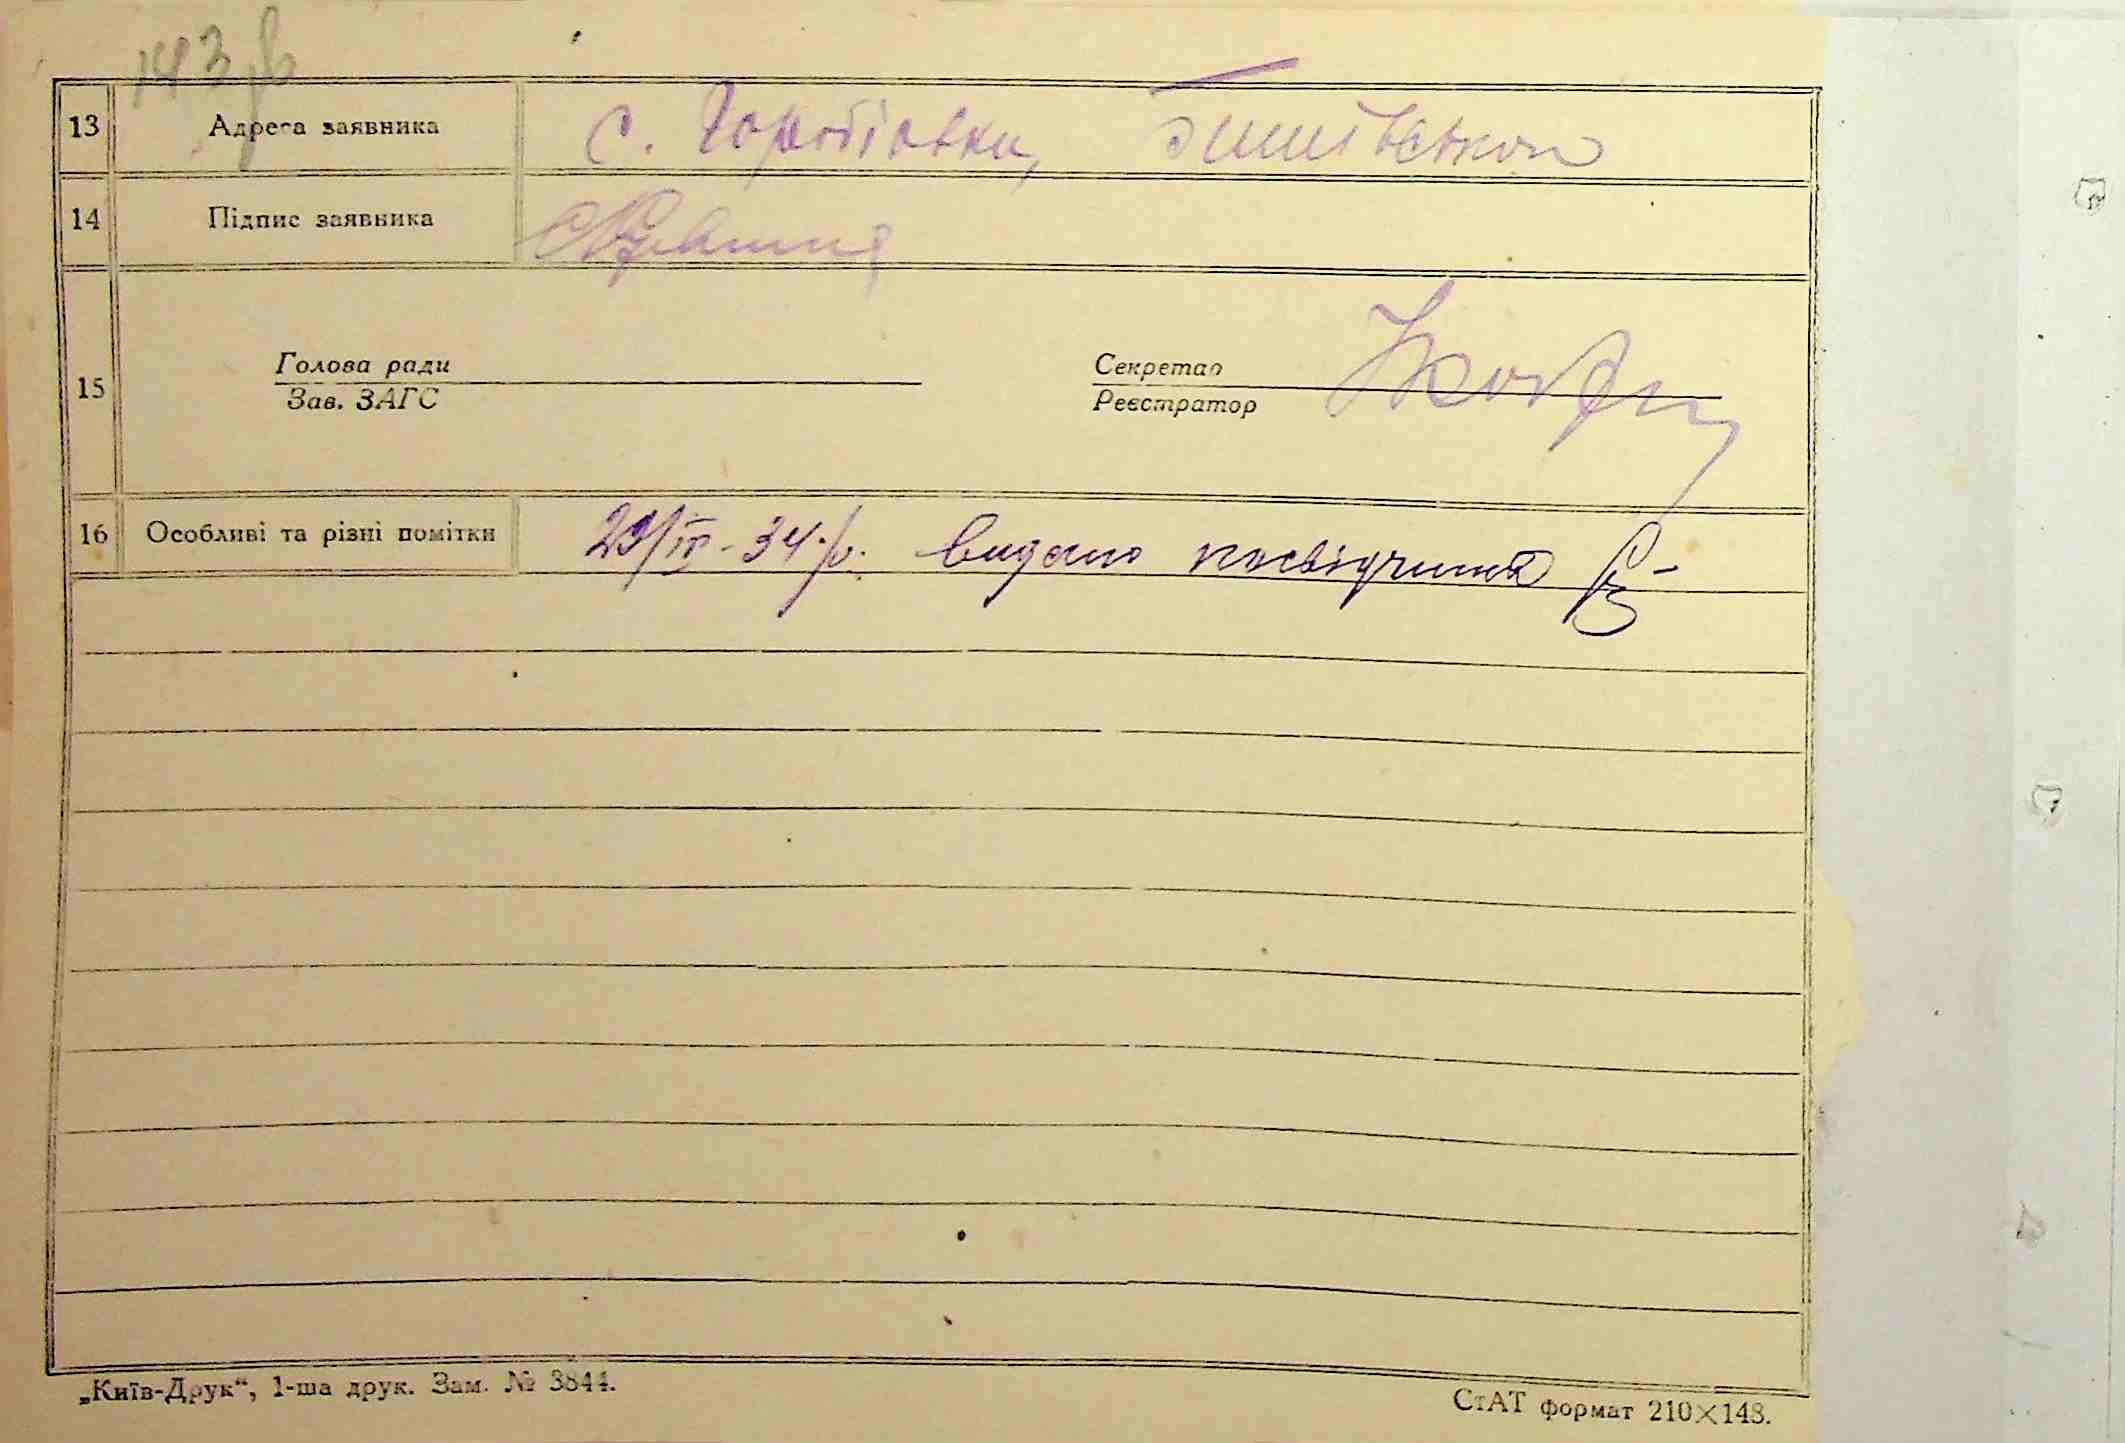 143
13 Адреса заявника с. Горобіовка,
14 Підпис заявника
15 Голова ради Секретар
Зав. ЗАГС Реєстратор
16 Особливі та різні помітки 29/IV-34 р. видано посвідчення
„Київ-Друк“, 1-ша друк. Зам. № 3844.
СтАТ формат 210×148.